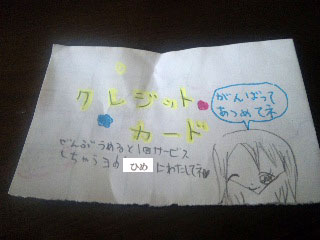 クレジット
カード
がんばって
あつめてネ
ぜんぶうめると1回サービス
しちゃうヨ♂
ひめ にわたしてネ♥